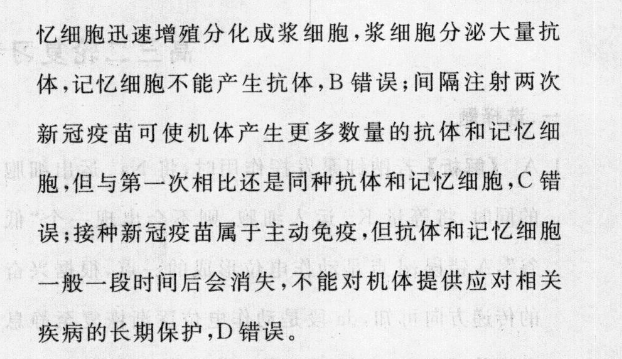 忆细胞迅速增殖分化成浆细胞,浆细胞分泌大量抗
体,记忆细胞不能产生抗体,B 错误;间隔注射两次
新冠疫苗可使机体产生更多数量的抗体和记忆细
胞,但与第一次相比还是同种抗体和记忆细胞,C 错
误;接种新冠疫苗属于主动免疫,但抗体和记忆细胞
一般一段时间后会消失,不能对机体提供应对相关
疾病的长期保护,D 错误。